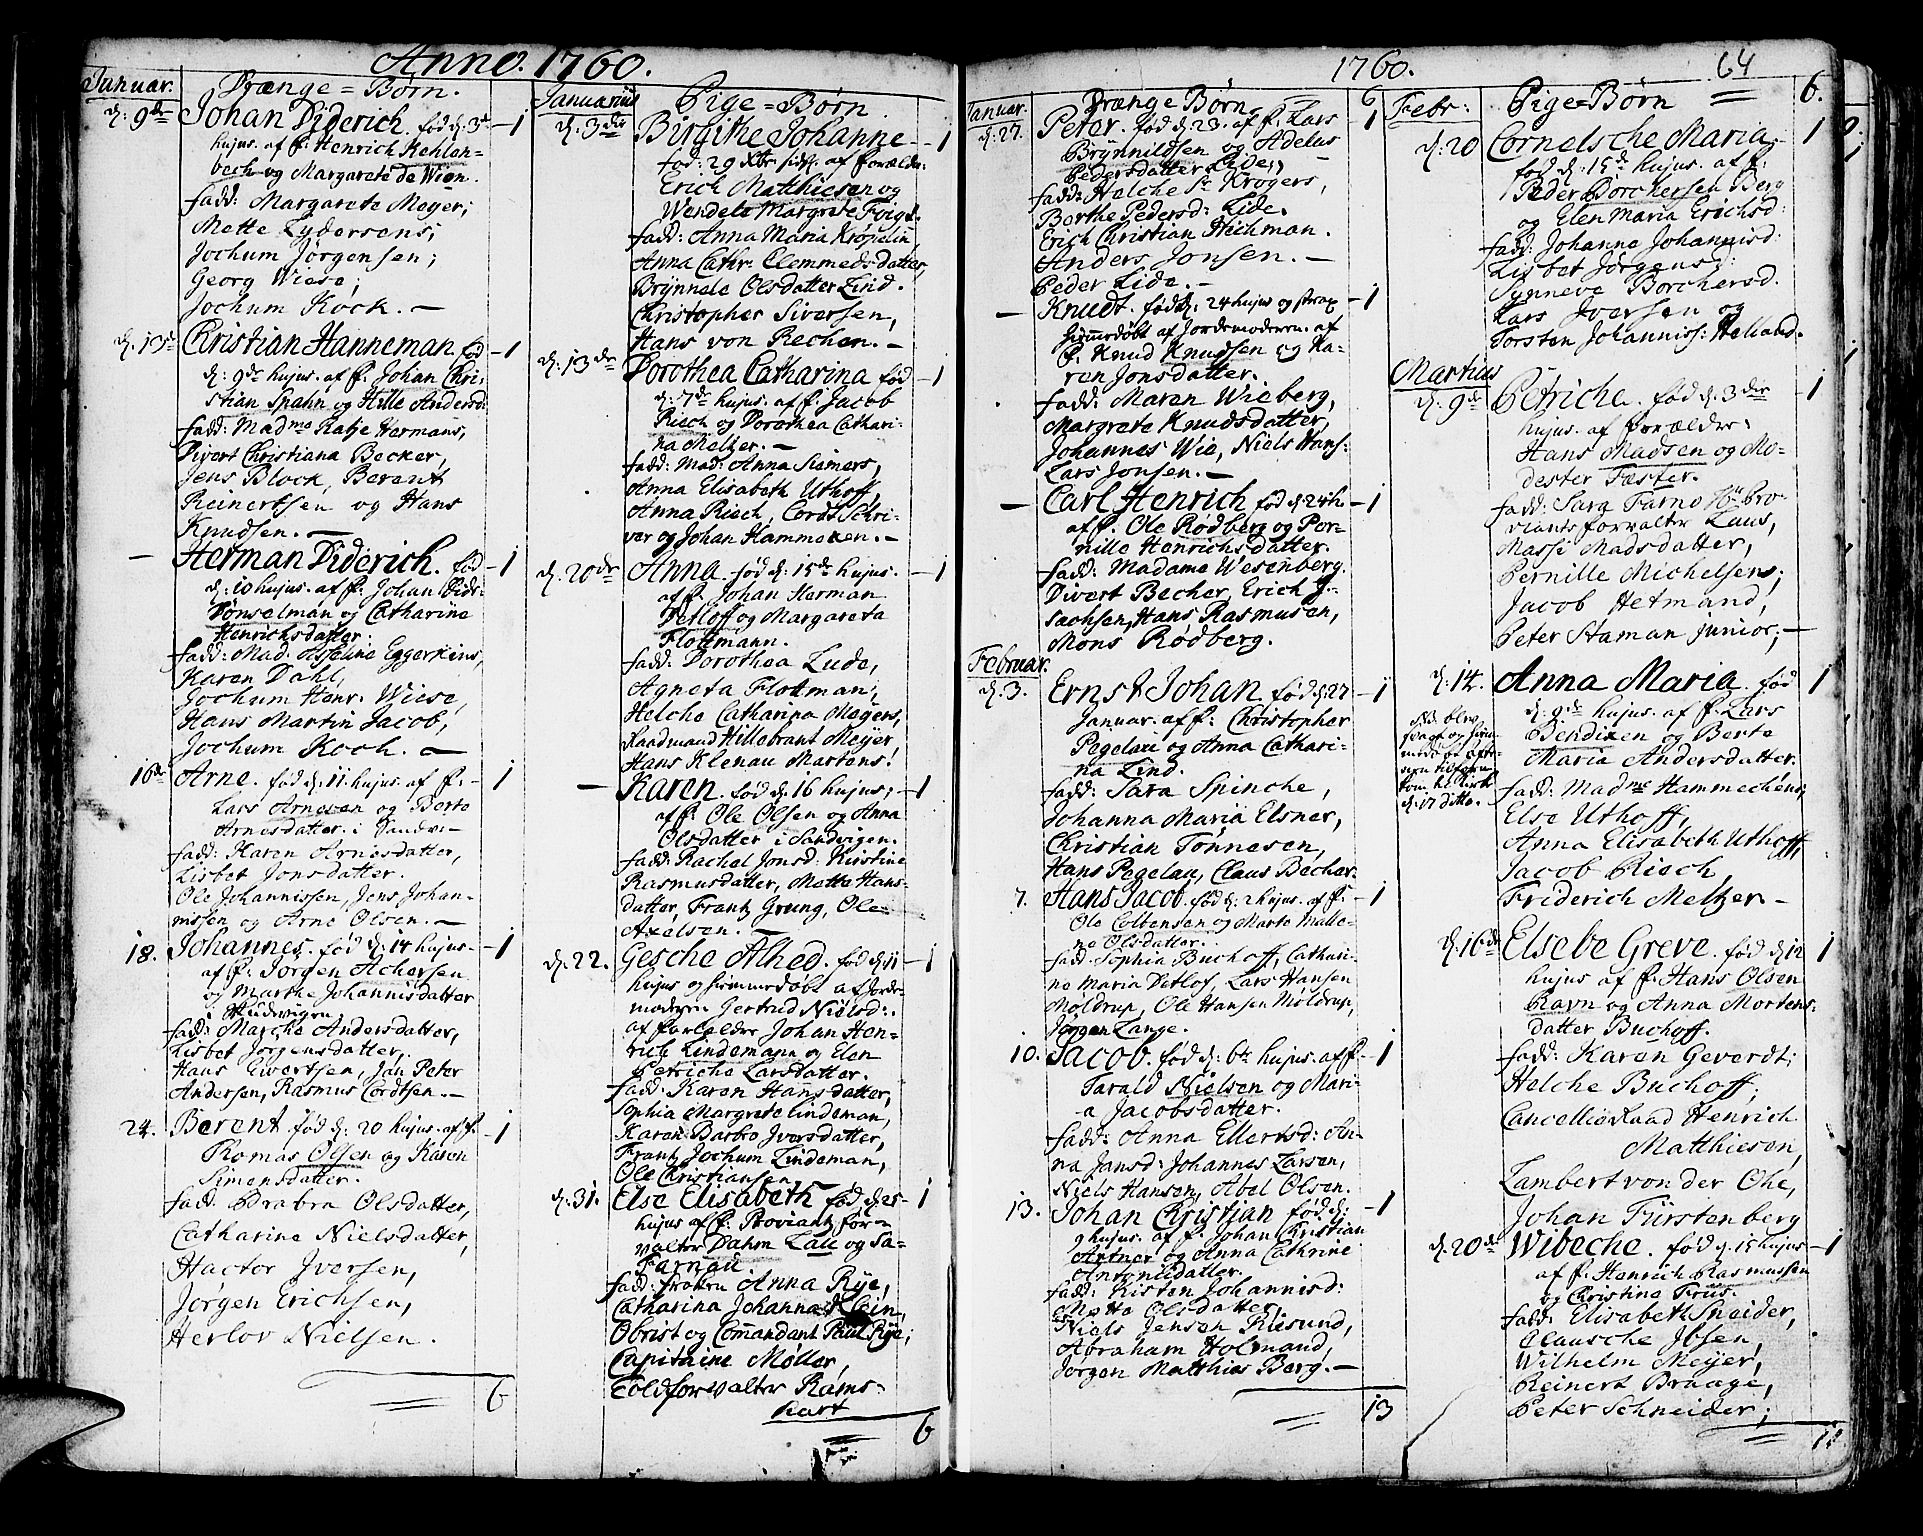 Anno. 1760.
Januar.
Drænge=Børn.
d. 9de
Johan Diderich. fød d. 3de
1
hujus. af f. Henrich Kehlen-
bech og Margarete de Wien.
fadd: Margarete Meyer;
Mette Lydersens;
Jochum Jørgensen;
Georg Wiese;
Jochum Kock. —
d. 13de
Christian Hanneman fød
1
d. 9de hujus. af f. Johan Chri-
stian Spahn og Hille Andersd:
fadd: Madme Katje Hermans,
Divert Christiana Becker,
Jens Block, Berent
Reinertsen og Hans
Knudsen. —
—
Herman Diderich. fød
1
d. 10 hujus. af f. Johan Didr:
Tönselman og Catharine
Henrichsdatter.
fadd: Mad. Asseline Eggerkins,
Karen Dahl,
Jochum Henr. Wiese,
Hans Martin Jacob,
Jochum Koch. —
16de
Arne. fød d. 11 hujus. af f.
1
Lars Arnesen og Berte
Arnesdatter. i Sandvi-
fadd: Karen Arnesdatter,
Lisbet Jonsdatter.
Ole Johannissen, Jens Johan-
nissen og Arne Olsen. —
18.
Johannes. fød d. 14 hujus.
1
af f. Jørgen Achersen
og Marthe Johannisdatter
i Studvigen
fadd: Marche Andersdatter,
Lisbet Jørgensdatter,
Hans Givertsen, Jan Peter
Andersen, Rasmus Cordtsen. —
24.
Berent. fød d: 20 hujus. af f.
1
Thomas Olsen og Karen
Simensdatter.
fadd: Drabra Olsdatter,
Catharine Nielsdatter,
Hactor Iversen,
Jørgen Erichsen,
Herlov Nielsen.
6
Januarius
Pige=Børn
d. 3die
Birgithe Johanne
1
fød: 29 Xbr. sidst. af forældr:
Erich Matthiesen og
Wendele Margrete Foigt.
fadd: Anna Maria Kröpelin,
Anna Cathr. Clemmedsdatter,
Brynnele Olsdatter Lind.
Christopher Siversen,
Hans von Rechen. —
d. 13de
Dorothea Catharina fød
1
d. 7de hujus. af f. Jacob
Riech og Dorothea Cathari-
na Meltzer. —
fadd: Mad: Anna Siemers,
Anna Elisabeth Uthoff,
Anna Riech, Cordt Schri-
ver og Johan Hammeken. —
d. 20de
Anna. fød d: 15de hujus.
1
af f. Johan Herman
Detloff og Margareta
Flottmann.
fadd: Dorothea Lude,
Agneta Flottman,
Helche Catharina Meyers,
Raadmand Hillebrant Meyer,
Hans Klenau Martens!
—
Karen. fød d. 16 hujus;
1
af f: Ole Olsen og Anna
Olsdatter i Sandvigen.
fadd: Rachel Jonsd: Kirstine
Rasmusdatter, Mette Hans-
datter, Frantz Grung, Ole
Axelsen. —
d. 22.
Gesche Alhed. fød d. 11
1
hujus og hiemmedøbt af Jorde-
moderen Gertrud Nielsd:
af forældre Johan Hen-
rich Lindemann og Elen
Petriche Larsdatter.
fadd: Karen Hansdatter,
Sophia Margrete Lindeman,
Karen Barbro Iversdatter,
Frantz Jochum Lindeman,
Ole Christiansen.
d. 31.
Else Elisabeth fød d. 25
1
hujus af f. Proviant for-
valter Dahm Lau og Sa-
Farnau.
fadd: frøken Anna Rye,
Catharina Johanna Klein,
Obrist og Commandant Paul Rye;
Capitaine Møller,
Toldforvalter Rams-
hart
6
1760.
64
Januar.
Drænge Børn
6
d. 27.
Peter. fød d. 23. af f. Lars
1
Brynnildsen og Adelus
Pedersdatter Lide,
fadd: Helche Sr Krøgers,
Berthe Pedersd: Lide,
Erich Christian Stichman.
Anders Jonsen. —
Peder Lide. —
—
Knudt. fød d: 24 hujus og strax
1
hiemmedøbt af Jordemoderen. af
f. Knud Knudsen og Ka-
ren Jonsdatter.
fadd: Maren Wieberg,
Margrete Knudsdatter,
Johannes Wie, Niels Hans:
Lars Jonsen. —
—
Carl Henrich fød d. 24 h.
1
af f. Ole Rødberg og Per-
nille Henrichsdatter.
fadd: Madame Wesenberg.
Divert Becher, Erich J-
sachsen, Hans Rasmusen,
Mons Rødberg.
Februar.
d. 3.
Ernst Johan fød d. 27
1
Januar. af f: Christopher
Pegelau og Anna Cathari-
na Lind.
fadd: Sara Spinche,
Johanna Maria Elsner,
Christian Tønnesen,
Hans Pegelau, Claus Becher.
7.
Hans Jacob. fød d: 2 hujus. af f.
1
Ole Colbensen og Marte Malle-
ne Olsdatter.
fadd: Sophia Buchoff, Cathari-
ne Maria Detlof, Lars Hansen
Moldrup, Ole Hansen Moldrup,
Jørgen Lange.
10.
Jacob. fød d: 6te hujus. af f.
1
Tarald Nielsen og Mari-
a Jacobsdatter.
fadd: Anna Ellertsd: An-
na Jansd: Johannes Larsen,
Niels Hansen, Abel Olsen.
13.
Johan Christian fød d:
1
9 hujus. af f. Johan Christian
Antner og Anna Cathrine
Antonisdatter.
fadd: Kisten Johannisd:
Mette Olsdatter,
Niels Jensen Risund,
Abraham Holmand,
Jørgen Matthias Berg. —
13
Febr:
Pige=Børn
6.
d: 20
Cornelsche Maria
1
fød d: 15de hujus. af f.
Peder Borchersen Berg
og Elen Maria Erichsd:
fadd: Johanne Johannisd:
Lisbet Jørgensd:
Synneve Borchersd.
Lars Iversen og
Torsten Johanniss: Helland.
Martius
d: 9de
Petriche. fød d. 3die
1
hujus. af forældre:
Hans Madsen og Mo-
dester Tæster.
fadd: Sara Farno Hr Pro-
viantsforvalter Laus,
Massi Madsdatter,
Pernille Michelsens;
Jacob Hetmand,
Peter Staman junior; —
d: 14.
Anna Maria. fød
1
d. 9de hujus. af f. Lars
Bendixen og Berte
Maria Andersdatter.
NB. blev
svag og hiem-
medøbt
kom til Kirke
d. 17 ditto.
fadd: Madme Hammechens;
Else Uthoff,
Anna Elisabeth Uthoff,
Jacob Riech,
Friderich Meltzer —
d: 16de
Elsebe Greve. fød d. 12
1
hujus af f. Hans Olsen
Ravn og Anna Mortens-
datter Buchoff.
fadd: Karen Geverdt;
Helche Buchoff;
Cancellie Raad Henrich
Matthiesen,
Lambert von der Ohe,
Johan Fürstenberg
d: 20de
Wibeche. fød d. 15 hujus
1
af f. Henrich Rasmussen
og Christine Friis.
fadd: Elisabeth Sneider,
Clausche Ibsen,
Wilhelm Meyer,
Reinert Braage,
Peter Schneider;
12